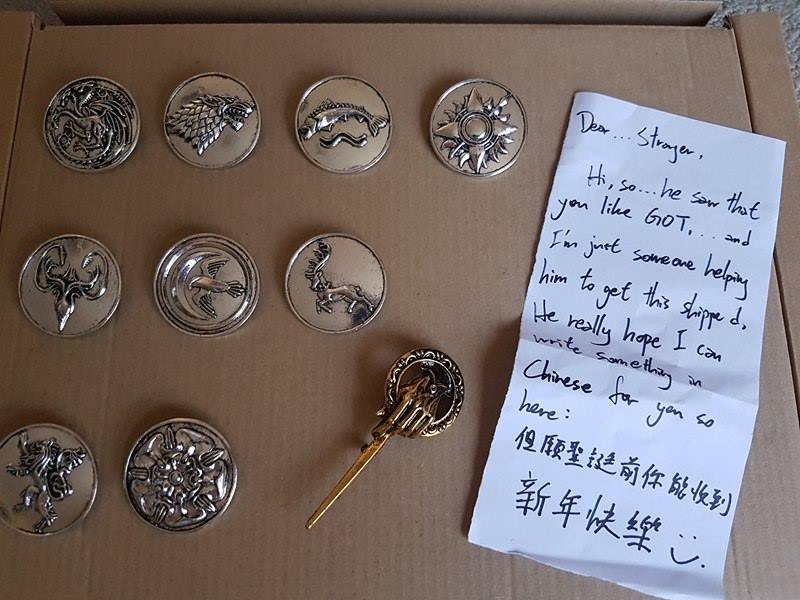 Dear... Strager,
Hi, so...he saw that
you like GOT,... and
I'm just someone helping
him to get this shipped,
He really hope I can
write something in
Chinese for you so
here:
但願聖誕前你能收到
新年快樂 :)